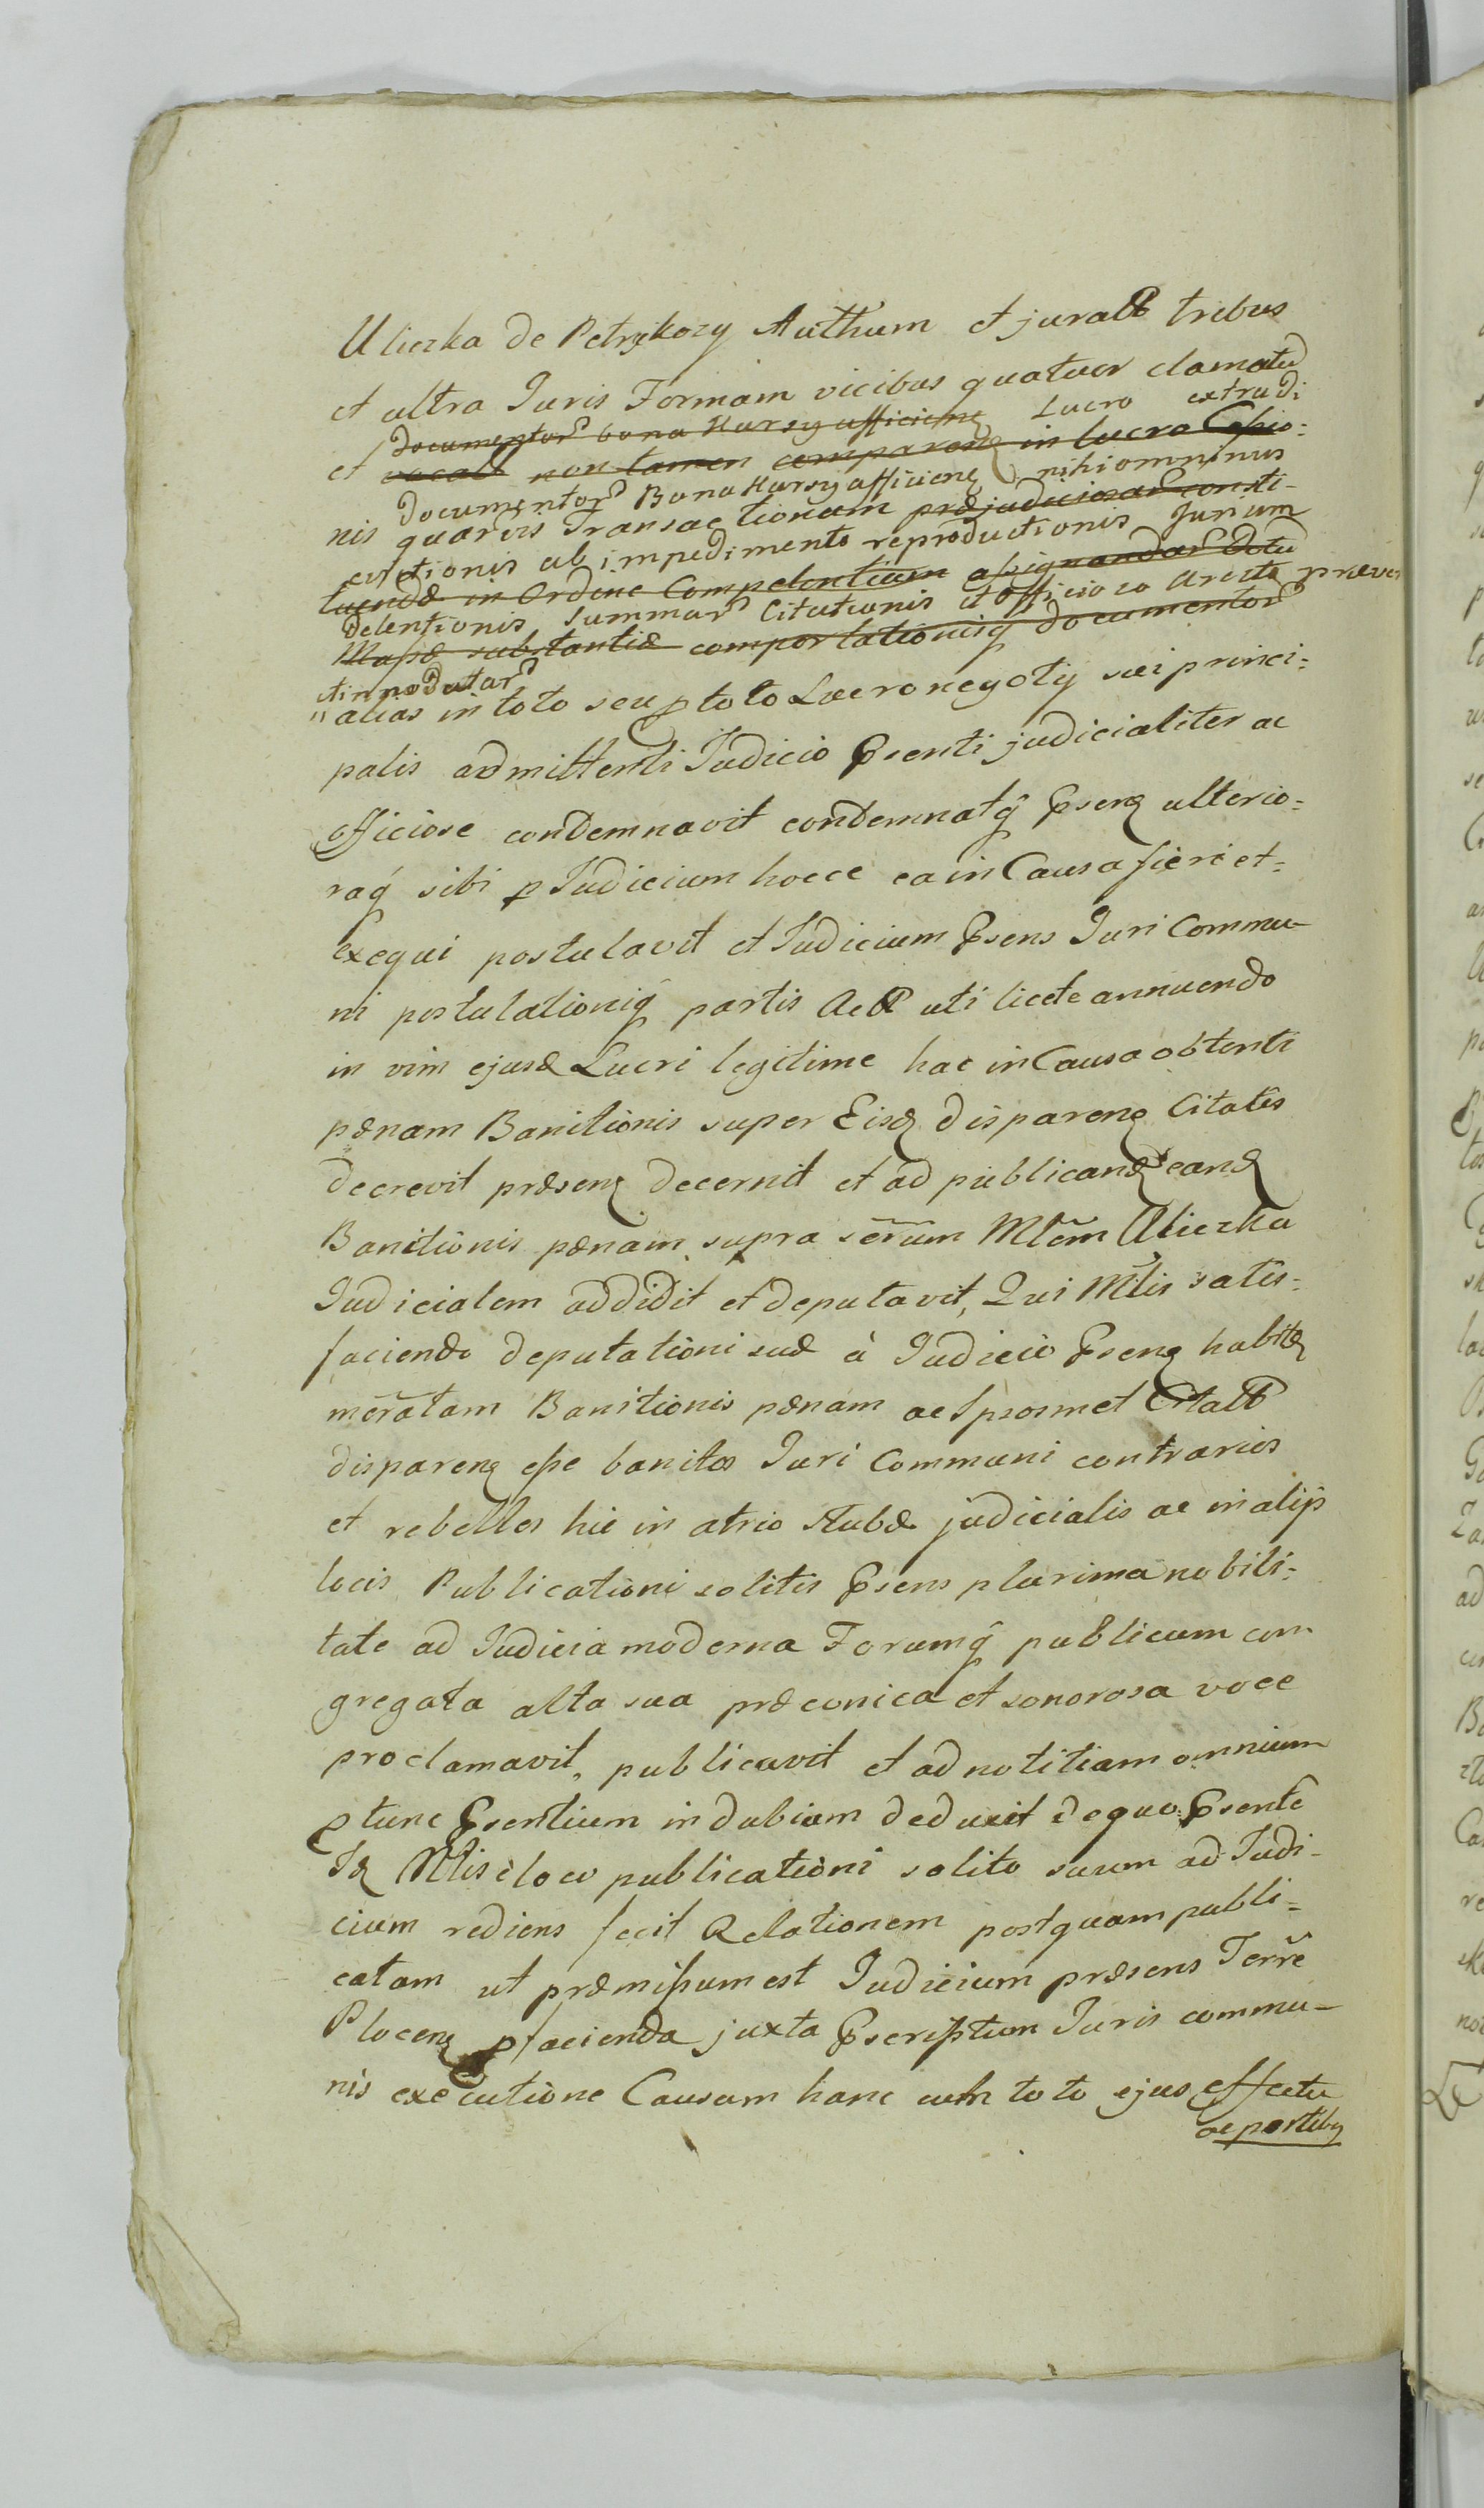 Uliczka de Petrykozy Authum et juratt tribus
et ultra Juris Formam vicibus quatuor clamatu
documentor bona Karsy afficienę Lucro extradi
et vocatt non tamen comparenę in lucro Cessio=
documentor Bona Karsy afficienę nihiominus
nis quarvis Transactionum præjudiciosar consti-
evictionis ab impedimento reproductionis Jurium
tuendæ in Ordine Competentium assignandar Dotu
detentionis summar Citationis et officioso Aresto præve
Massæ substantiæ comportationisq documentor
tinnodatar
"alias in toto seu p toto Lucro negotij sui princi=
palis admittenti Judicio Psenti judicialiter ac
officiose condemnavit condemnatq Psenę ulterio=
raq sibi p Judicium hocce ea in Causa fieri et=
exequi postulavit et Judicium Psens Juri Commu-
ni postulationiq partis Act uti licete annuendo
in vim ejusd Lucri legitime hac in Causa obtenti
pænam Banitionis super Eisd disparenę Citatis
decrevit præsenę decernit et ad publicand eand
Banitionis pænam supra serum Mlem Uliczka
Judicialem addidit et deputavit, Qui Mlis satis=
faciendo deputationi suæ à Judicio Psenę habitæ
memoratam Banitionis pænam ac Ipsosmet Citatt
disparenę esse banitos Juri Communi contrarios
et rebelles hic in atrio Stubæ judicialis ac in alijs
locis Publicationi solitis Psens plurima nobili=
tate ad Judicia moderna Forumq publicum con
gregata alta sua præconica et sonorosa voce
proclamavit, publicavit et ad notitiam omnium
ptunc Psentium indubiam deduxit de quo Psente
Id Mlis è loco publicationi solito suum ad Judi-
cium rediens fecit Relationem postquam publi=
catam ut præmissum est Judicium præsens Terre
Plocenę p facienda juxta Pscriptum Juris commu-
nis executione Causam hanc cum toto ejus effectu
ac partibq